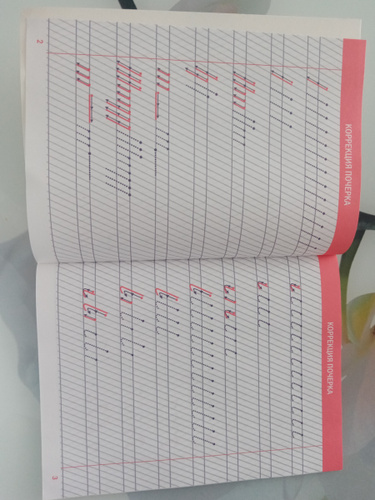 КОРРЕКЦИЯ ПОЧЕРКА
2
КОРРЕКЦИЯ ПОЧЕРКА
3